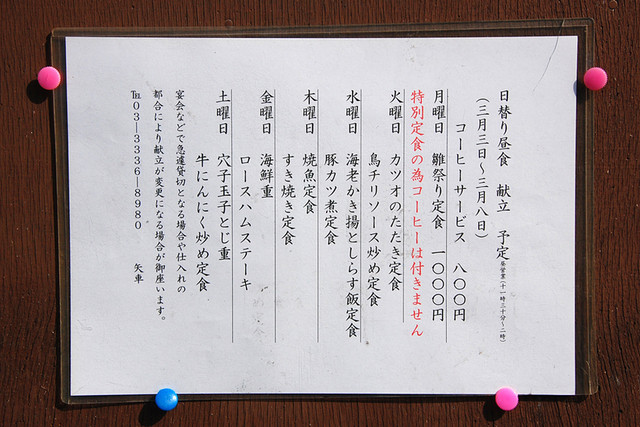 日替り昼食　献立　予定 昼営業(十一時三十分〜二時)
(三月三日〜三月八日)
コーヒーサービス　八〇〇円
月曜日　雛祭り定食　一〇〇〇円
特別定食の為コーヒーは付きません
火曜日　カツオのたたき定食
鳥チリソース炒め定食
水曜日　海老かき揚としらす飯定食
豚カツ煮定食
木曜日　焼魚定食
すき焼き定食
金曜日　海鮮重
ロースハムステーキ
土曜日　穴子玉子とじ重
牛にんにく炒め定食
宴会などで急遽貸切となる場合や仕入れの
都合により献立が変更になる場合が御座います。
℡03―3336―8980　矢車